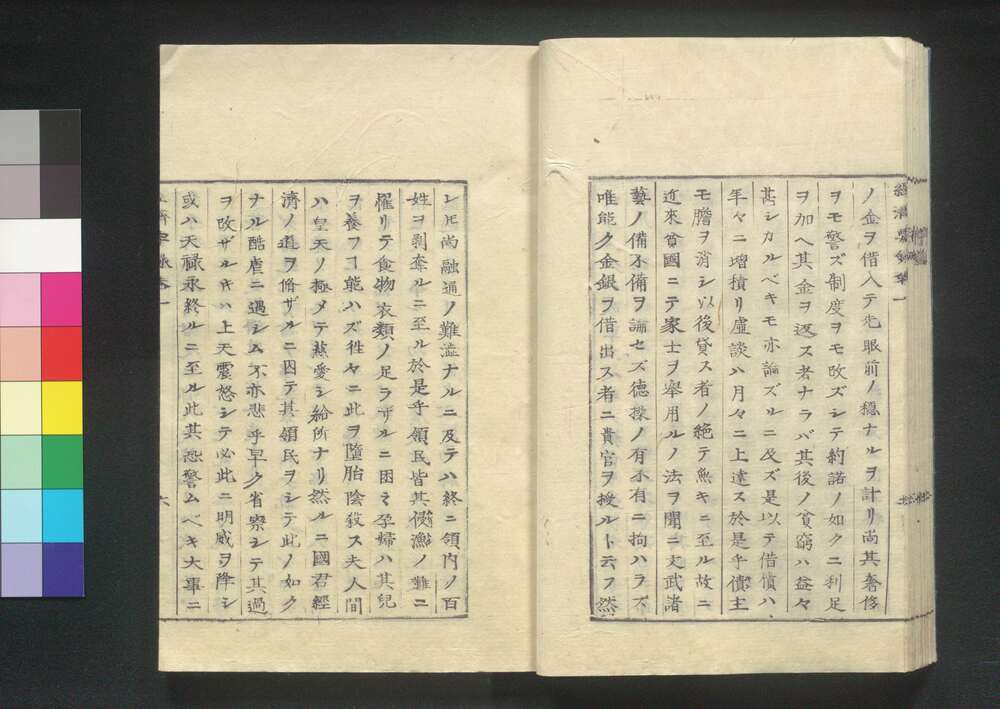 ノ金ヲ借入テ先眼前ノ穏ナルヲ計リ尚其奢侈
ヲモ警ズ制度ヲモ改ズシテ約諾ノ如クニ利足
ヲ加ヘ其金ヲ返ス者ナラバ其後ノ貧窮ハ益々
甚シカルベキモ亦論ズルニ及ズ是以テ借債ハ
年々ニ増積リ虚談ハ月々ニ上達ス於是乎債主
モ膽ヲ消シ以後貸ス者ノ絶テ無キニ至ル故ニ
近來貧國ニテ家士ヲ挙用ルノ法ヲ聞ニ文武諸
藝ノ備不備ヲ論セズ徳操ノ有不有ニ拘ハラズ
唯能ク金銀ヲ借出ス者ニ貴官ヲ授ルト云フ然
レ𪜈尚融通ノ難澁ナルニ及テハ終ニ領内ノ百
姓ヲ剥奪ルニ至ル於是乎領民皆其侵漁ノ難ニ
罹リテ食物衣類ノ足ラザルニ困ミ孕婦ハ其兒
ヲ養フヿ能ハズ徃々ニ此ヲ墮胎陰殺ス夫人間
ハ皇天ノ極メテ慈愛シ給所ナリ然ルニ國君經
濟ノ道ヲ脩ザルニ因テ其領民ヲシテ此ノ如ク
ナル酷虐ニ遇シム不亦悲乎早ク省察シテ其過
ヲ改ザルキハ上天震怒シテ必此ニ明威ヲ降シ
或ハ天禄永終ルニ至ル此其恐警ムベキ大事ニ
六